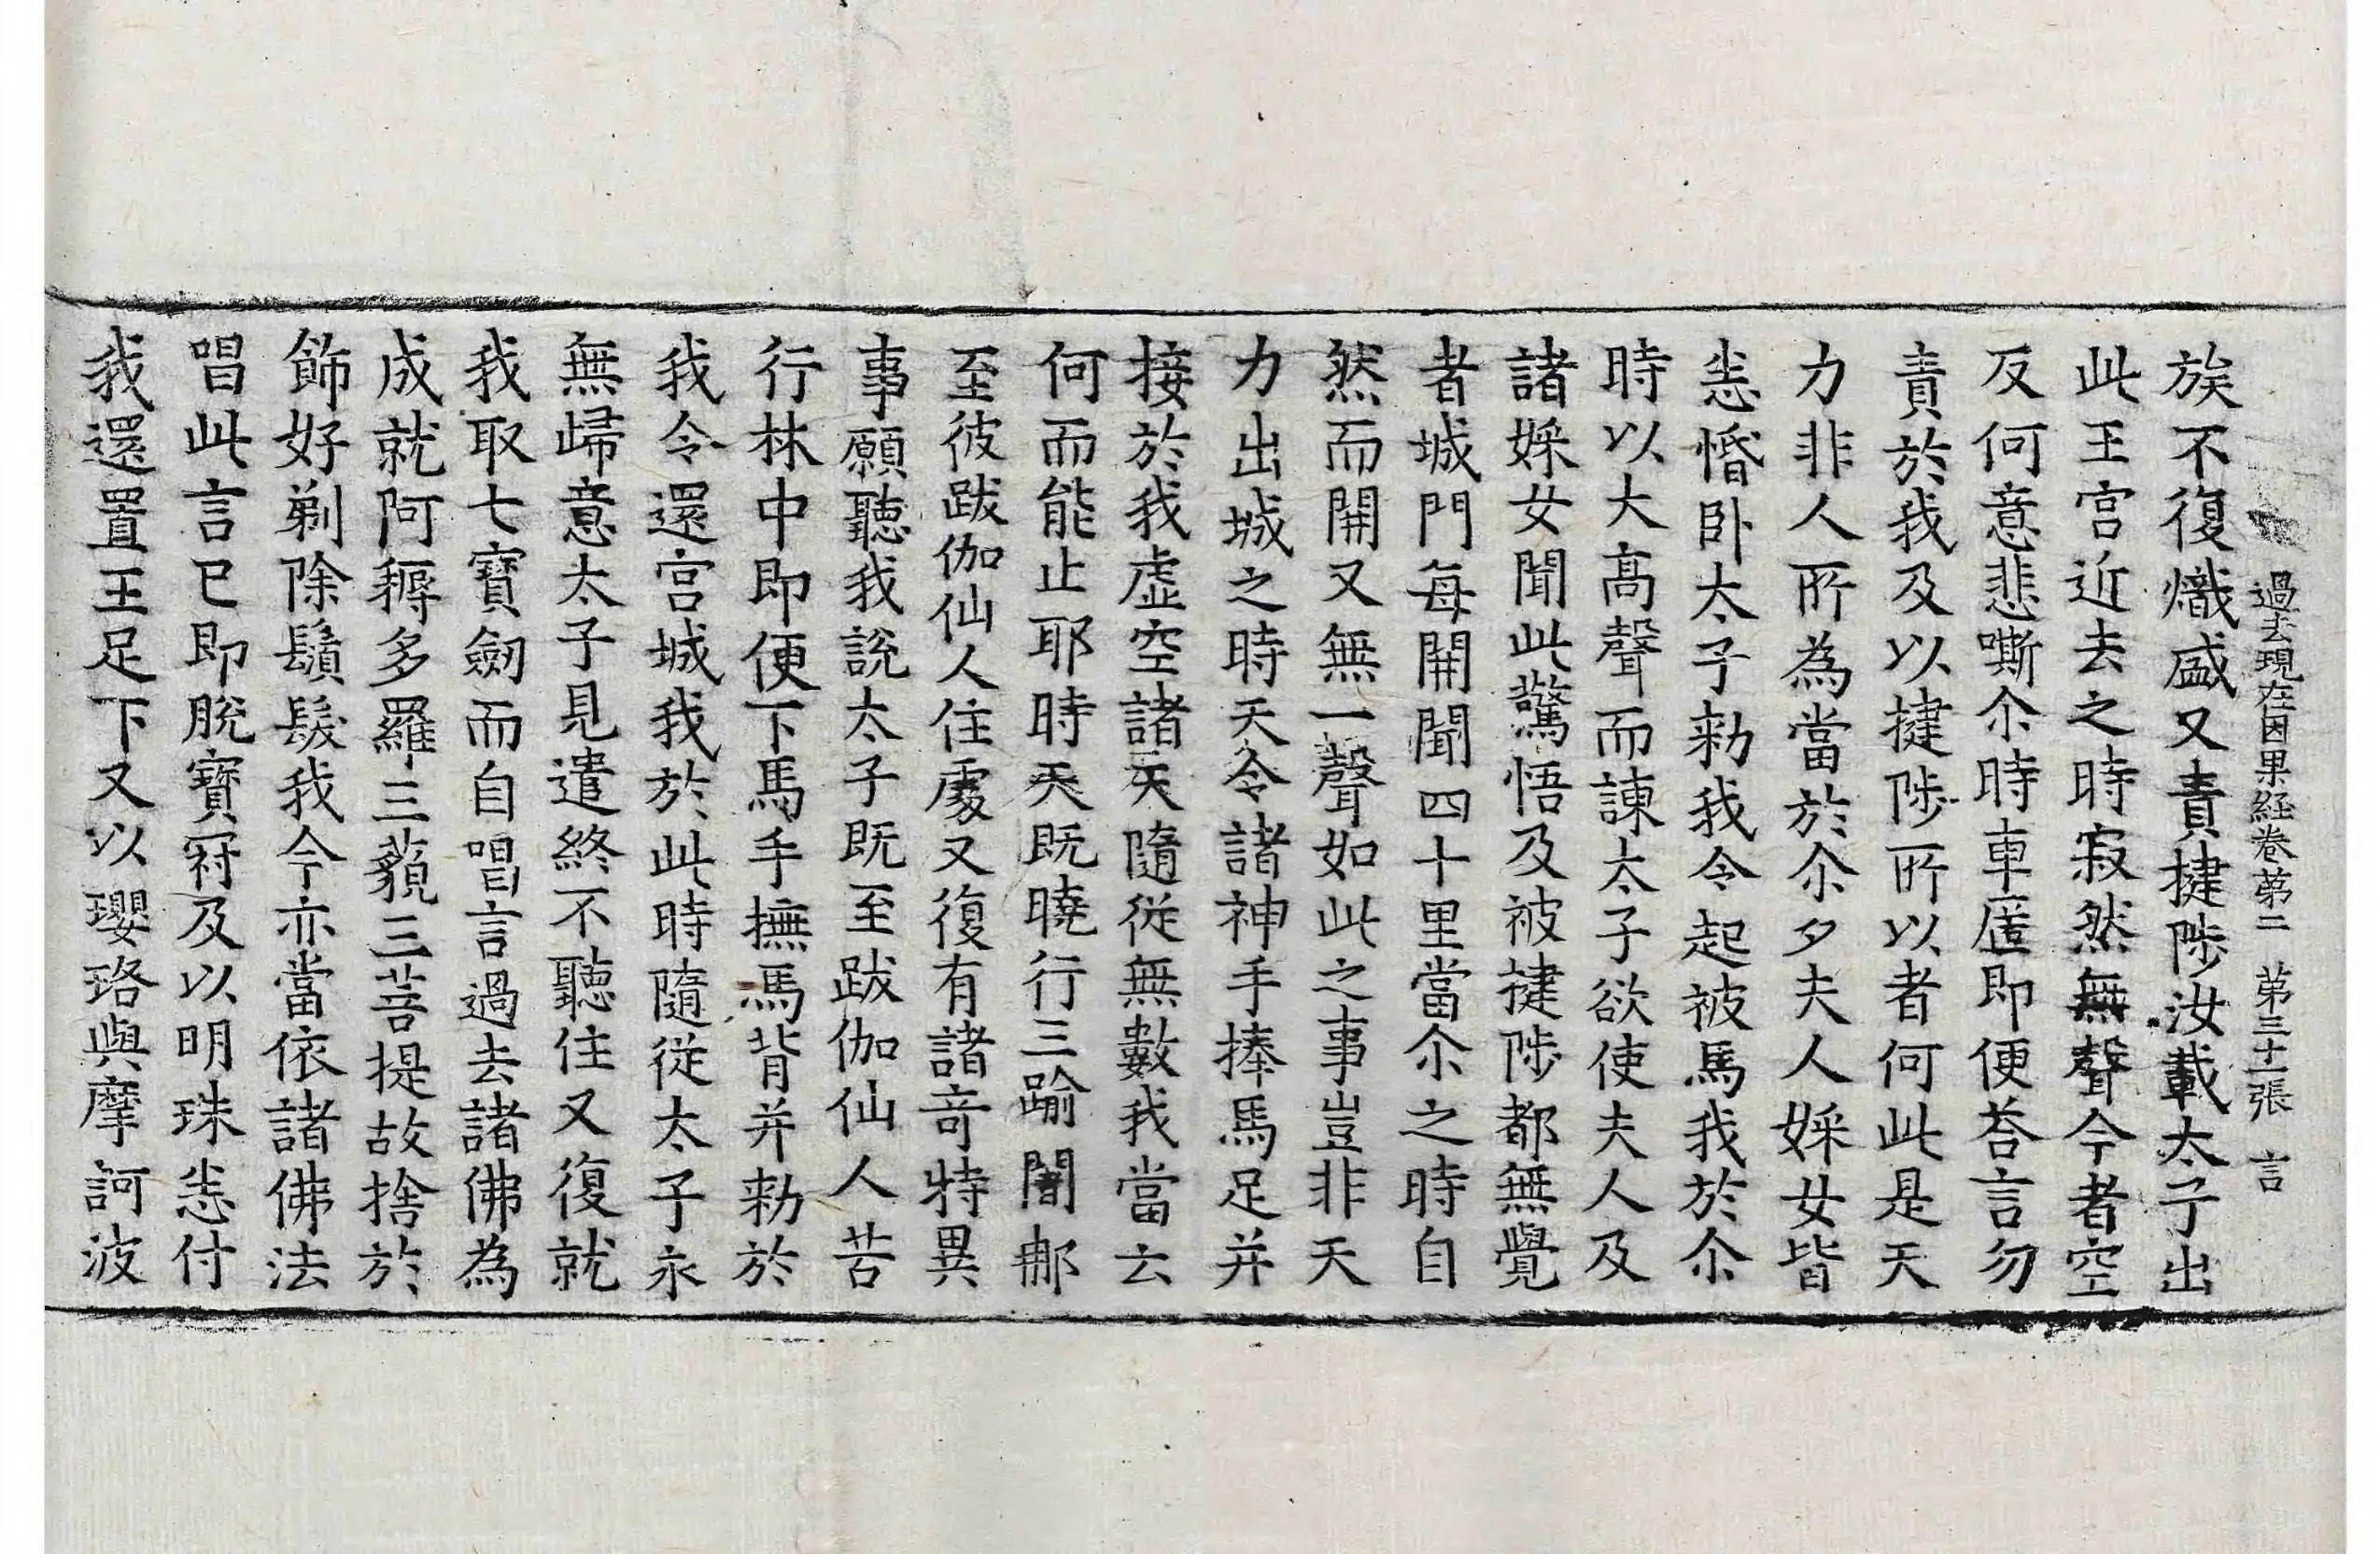 過去現在因果経卷第二　第三十二張　言
族不復熾盛又責揵陟汝載太子出
此王宫近去之時寂然無聲今者空
反何意悲嘶尒時車匿即便荅言勿
責於我及以揵陟所以者何此是天
力非人所為當於尒夕夫人婇女皆
悉惛卧太子勑我令起被馬我於尒
時以大高聲而諫太子欲使夫人及
諸婇女聞此驚悟及被揵陟都無覺
者城門每開聞四十里當尒之時自
然而開又無一聲如此之事豈非天
力出城之時天令諸神手捧馬足并
接於我虛空諸天隨從無數我當云
何而能止耶時天既曉行三踰闍那
至彼跋伽仙人住處又復有諸竒特異
事願聽我說太子既至跋伽仙人苦
行林中即便下馬手撫馬背并勑於
我令還宫城我於此時隨從太子永
無歸意太子見遣終不聽住又復就
我取七寶劒而自唱言過去諸佛為
成就阿耨多羅三藐三菩提故捨於
飾好剃除鬚髮我今亦當依諸佛法
唱此言已即脫寶冠及以明珠悉付
我還置王足下又以瓔珞與摩訶波